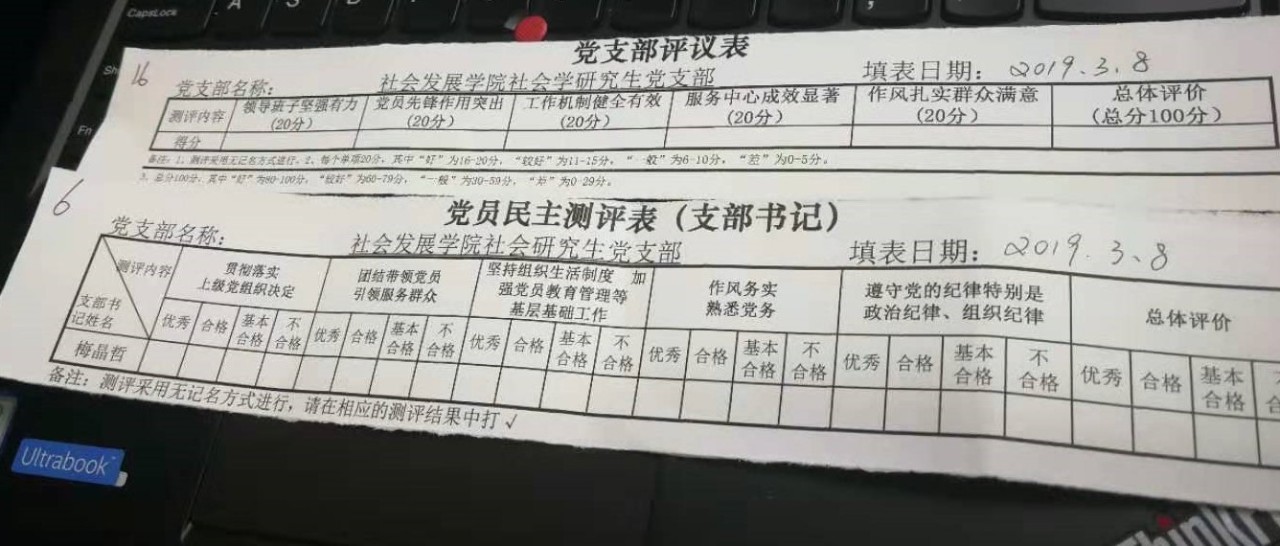 CapsLock
A
S
Fn
党支部评议表
16
党支部名称: 社会发展学院社会学研究生党支部 填表日期: 2019.3.8
测评内容 领导班子坚强有力(20分) 党员先锋作用突出(20分) 工作机制健全有效(20分) 服务中心成效显著(20分) 作风扎实群众满意(20分) 总体评价(总分100分)
得分
备注:1、测评采用无记名方式进行。2、每个单项20分,其中“好”为16-20分,“较好”为11-15分,“一般”为6-10分,“差”为0-5分。
3、总分100分,其中“好”为80-100分,“较好”为60-79分,“一般”为30-59分,“差”为0-29分。
6
党员民主测评表(支部书记)
党支部名称: 社会发展学院社会研究生党支部 填表日期: 2019.3.8
测评内容 贯彻落实 团结带领党员 坚持组织生活制度 加 作风务实 遵守党的纪律特别是 总体评价
上级党组织决定 引领服务群众 强党员教育管理等 熟悉党务 政治纪律、组织纪律
基层基础工作
支部书记姓名 优秀 合格 基本合格 不合格 优秀 合格 基本合格 不合格 优秀 合格 基本合格 不合格 优秀 合格 基本合格 不合格 优秀 合格 基本合格 不合格 优秀 合格 基本合格
梅晶哲
备注:测评采用无记名方式进行,请在相应的测评结果中打√
Ultrabook